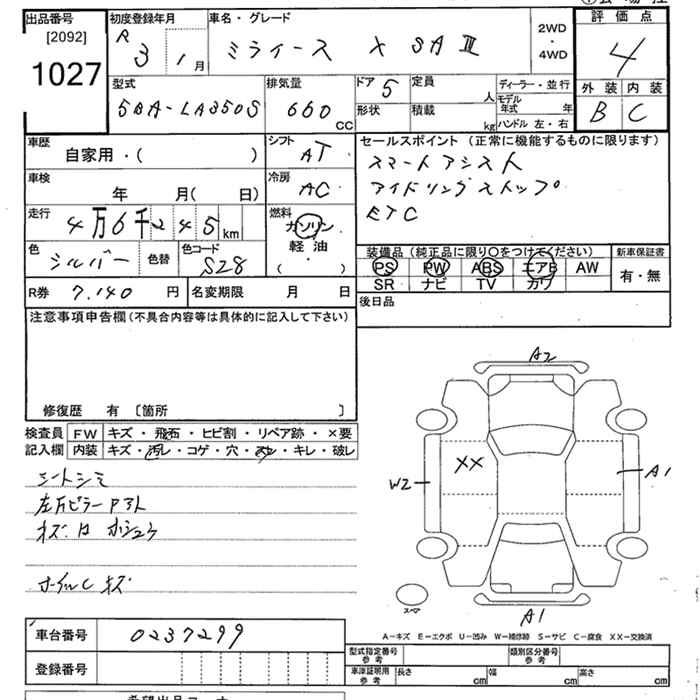 出品番号 初度登録年月 車名・グレード 2WD・4WD 評価点
[2092] R 3 1月 ミライース X SAⅢ 4
1027
型式 排気量 ドア 5 定員 人 ディーラー・並行 外装 内装
5BA-LA350S 660 CC 形状 積載 kg モデル年式 年 B C
ハンドル 左・右
車歴 シフト セールスポイント (正常に機能するものに限ります)
自家用・( ) AT スマートアシスト
車検 冷房 アイドリングストップ
年 月( 日) AC ETC
走行 燃料
4万6千245km ガソリン
軽油
( )
色 色替 色コード 装備品 (純正品に限り○をつけてください) 新車保証書
シルバー S28 PS PW ABS エアB AW 有・無
SR ナビ TV カワ
R券 7.140 円 名変期限 月 日 後日品
注意事項申告欄 (不具合内容等は具体的に記入して下さい)
修復歴 有 〔箇所 〕
検査員 FW キズ・飛石・ヒビ割・リペア跡・×要
記入欄 内装 キズ・汚レ・コゲ・穴・スレ・キレ・破レ
シートシミ
左方ピラーアウト
ホイルC キズ
A2
XX
W2
A1
スペア
A1
A-キズ E-エクボ U-凹み W-補修跡 S-サビ C-腐食 XX-交換済
車台番号 0237299
型式指定番号 参考 類別区分番号 参考
登録番号 車庫証明用 参考 長さ cm 幅 cm 高さ cm